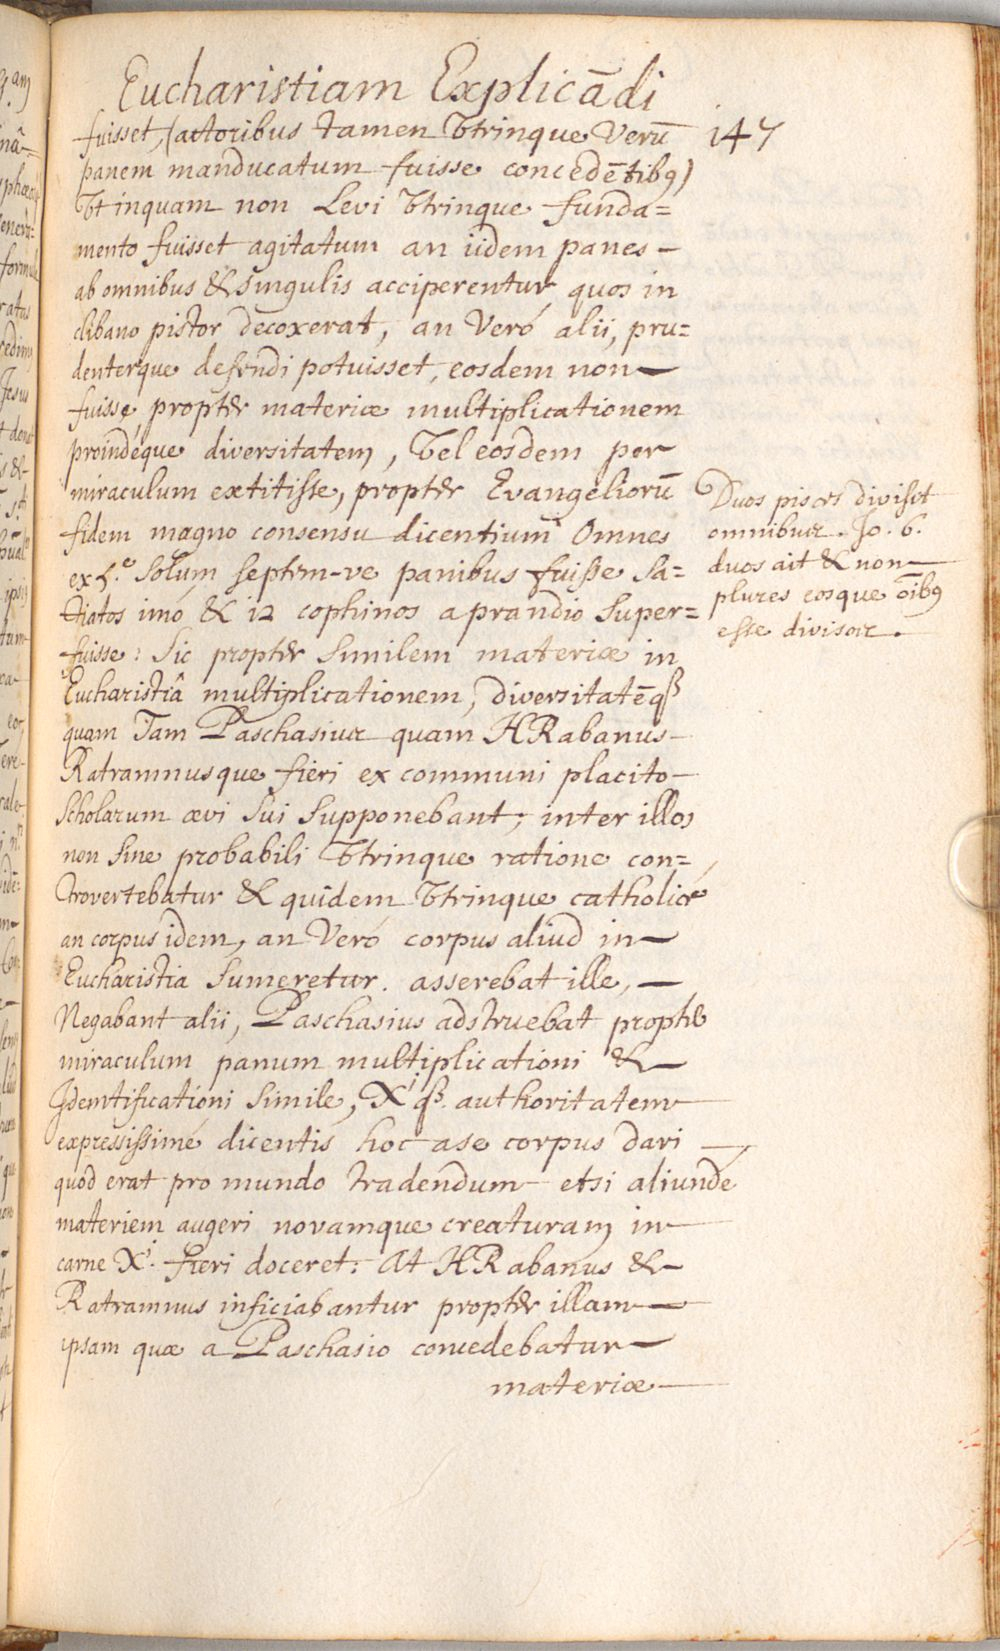 Eucharistiam Explicādi
147
fuisset, (actoribus tamen Vtrinque Verū
panem manducatum fuisse concedētibꝯ)
Vt inquam non Levi Vtrinque funda=
mento fuisset agitatum an iidem panes –
ab omnibus & singulis acciperentur, quos in
clibano pistor decoxerat, an Veró alii, pru=
denterque defendi potuisset, eosdem non –
fuisse, propter materiæ multiplicationem
proindéque diversitatem, Vel eosdem per
miraculum extitisse, propter Evangeliorū
fidem magno consensu dicentium Omnes
ex 5.e solum septem-ve panibus fuisse sa=
tiatos imó, & 12 cophinos a prandio super=
fuisse: Sic propter similem materiæ in
Eucharistiâ multiplicationem, diversitatēqß
quam Tam Paschasius quam HRabanus –
Ratramnusque fieri ex communi placito –
Scholarum ævi sui supponebant; inter illos
non sine probabili Vtrinque ratione con=
trovertebatur & quidem Vtrinque catholicé
an corpus idem, an Veró corpus aliud in –
Eucharistia sumeretur. asserebat ille, –
Negabant alii, Paschasius adstruebat propter
miraculum panum multiplicationi & –
Identificationi simile, Xi qß. authoritatem
expressissimé dicentis hoc a se corpus dari –
quod erat pro mundo tradendum etsi aliunde
materiem augeri novamque creaturam in
carne Xi. fieri doceret: At HRabanus & –
Ratramnus inficiabantur propter illam –
ipsam quæ a Paschasio concedebatur –
materiæ –
Duos pisces divisit
omnibus. Jo. 6.
duos ait & non –
plures eosque oībꝯ
esse divisos.